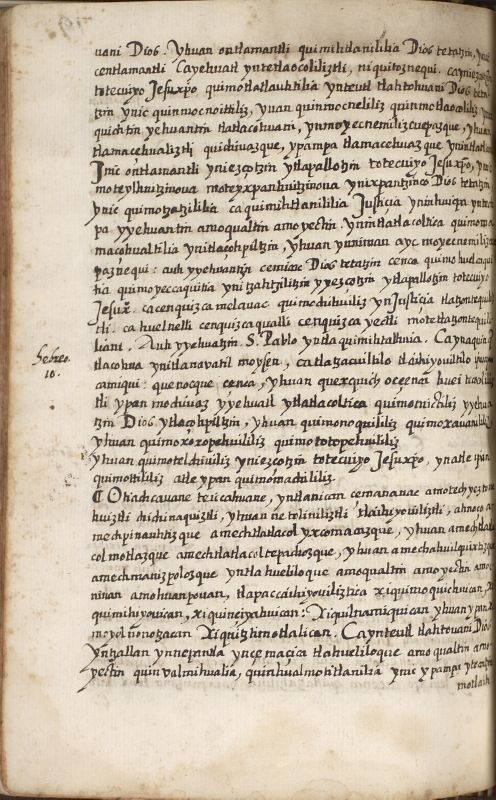 uani Dios. Yhuan ontlamantli quimihtlanililia Dios tetatzin,
centlamantli Cayehuatl yntetlaocoliliztli, niquitoznequi. cayniezçotzin
totecuiyo Jesuxpo quimotlatlauhtilia ynteutl tlahtohuani Dios teta
tzin ynic quinmocnoittiliz, yuan quinmocneliliz quinmotlaocoliliz
quichtin yehuantin tlatlacohuani, ynmoyecnemilizcuepazque, yhuan
tlamacehualiztli quichiuazque, ypampa tlamacehuazque ynintlatla
Inic ontlamantli yniezçotzin ytlapallotzin totecuiyo Jesuxpo,
moteylhuitzinoua moteyxpanhuitzinoua ynixpantzinco Dios tetatzin
ynic quimotzatzililia ca quimihtlanililia Justicia ynimhuicpa
pa yyehuantin amoqualtin amoyectin ynintlatlacoltica
macohualtilia ynitlaçohpiltzin, yhuan ynniman ayc moyecnemiliz
paznequi: auh yyehuantzin cemicac Dios tetatzin cenca
tia quimoyeccaquitia ynitzahtzilitzin yyezçotzin ytlapallotzin totecuiyo
Jesuxo. ca cenquizca melauac quimochihuiliz ynJusticia tlatzontequiliz
tli. ca huelnelli cenquizcaqualli cenquizca yectli motetlatzontequili
liani. Auh yyehuatzin. S. Pablo yntla quimihtalhuia. Caynaquin
Hebreo. 10.
tlacohua ynitlanavatil moysen, ca tlatzacuiltilo tlaihiyouiltilo
camiqui: quenocque cenca, yhuan quexquich occenca huei
tli ypan mochiuaz yyehuatl ytlatlacoltica quimomictiliz
tzin Dios ytlaçohpiltzin, yhuan quimonoquililiz quimoxauanililiz
yhuan quimoxoxopehuililiz quimototopehuililiz
yhuan quimotelchiuiliz yniezçotzin totecuiyo Jesuxpo, ynatle ipan
quimottililiz atle ypan quimomachililiz.
¶ Otiachcauane teiccahuane, yntlanican cemanauac amotechyez
huiztli chichinaquiztli, yhuan netoliniliztli tlaihiyouiliztli, ahnoço
mechpinauhtizque amechtlatlacol yxcomacazque, yhuan amechtla
colmotlazque amechtlatlacoltepachozque, yhuan amechahuilquixtizque
amechmanizpolozque yntlahueliloque amoqualtin amoyectin
ninan amohuanpouan, tlapaccaihiyouiliztica xiquimoquichuican,
quimihiyouican, xiquineiyahuican: Xiquilnamiquican yhuan ypan
moyolnonotzacan Xiquiztimotlalican. Caynteutl tlahtouani Dios
yntzallan ynnepantla yncemacica tlahueliloque amoqualtin amo
yectin quinvalmihualia, quinhualmotitlanilia ynic ypampa
motlaih